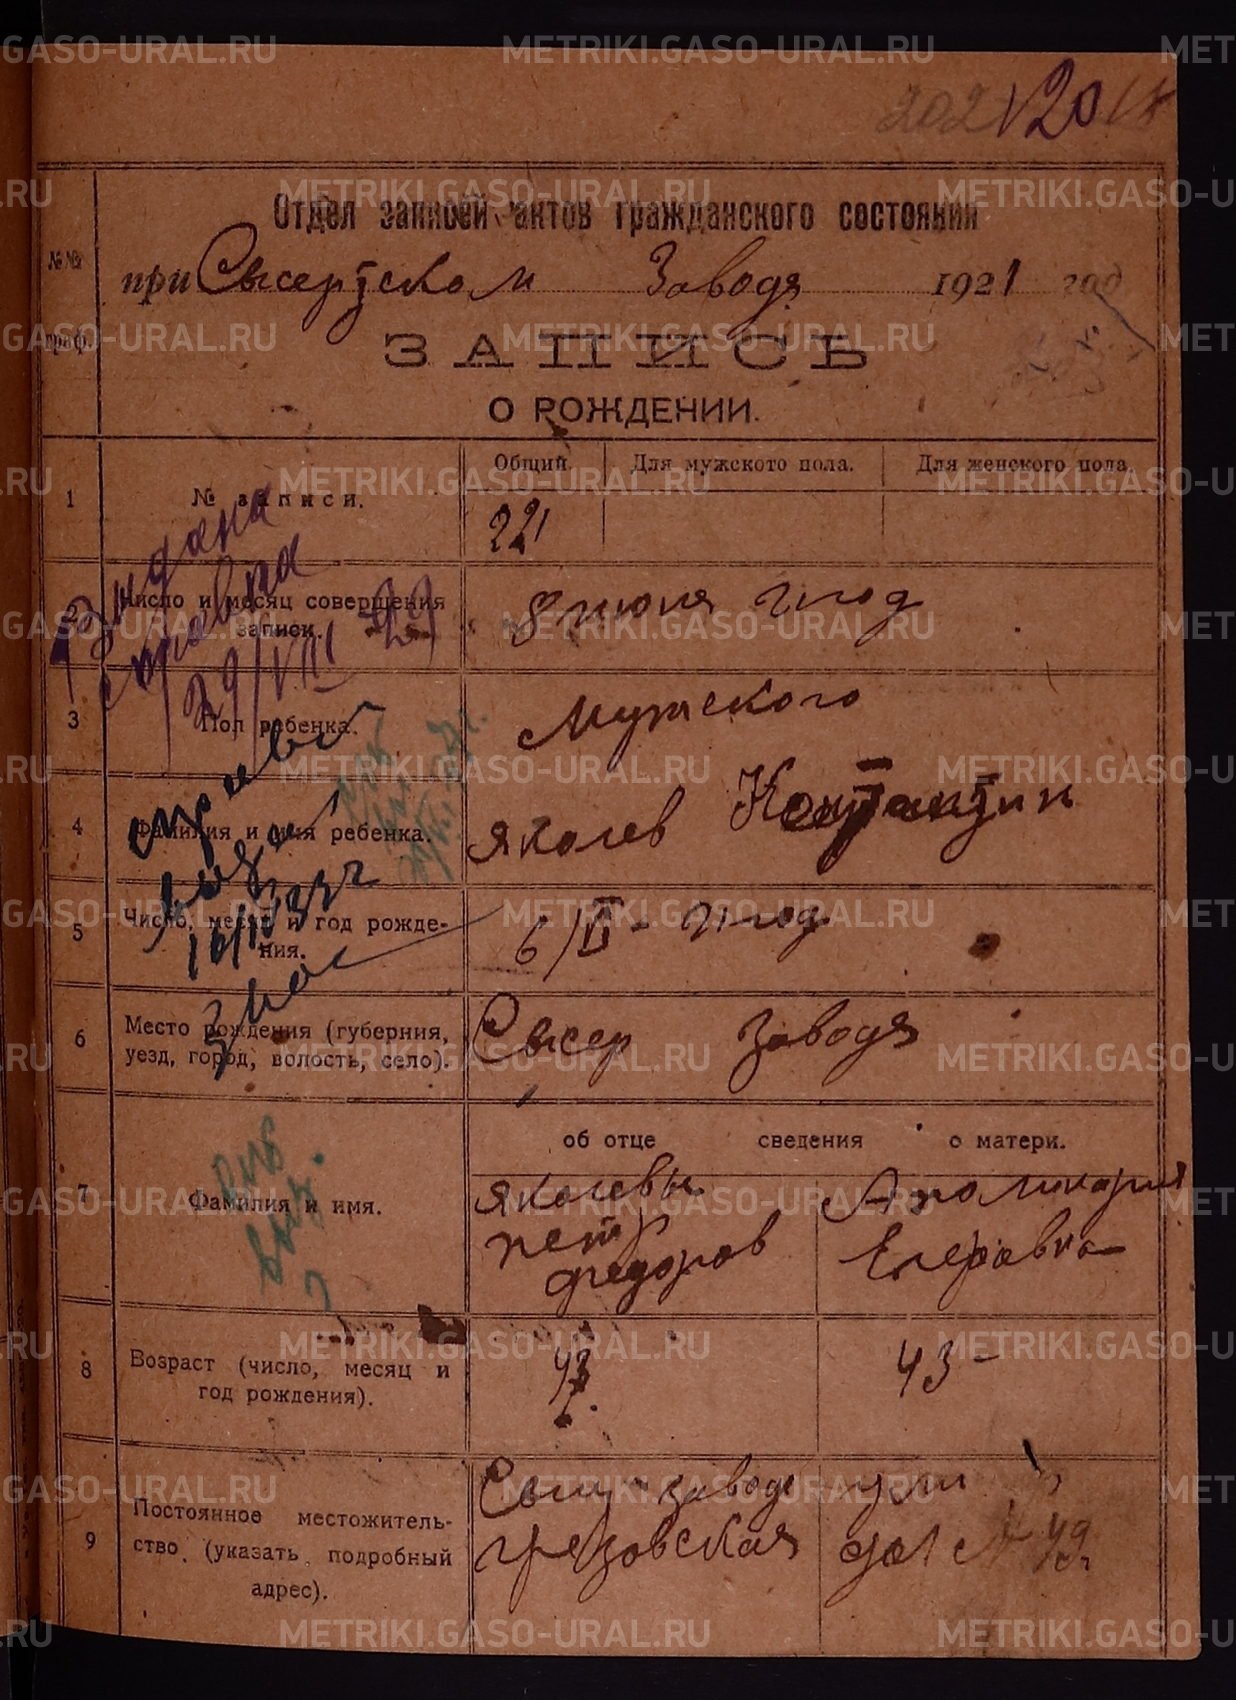 202 120
Отдел записей актов гражданского состояния
№№ граф.
при Сысертском Заводя 1921 год
ЗАПИСЬ
О РОЖДЕНИИ.
Общий. Для мужского пола. Для женского пола.
1 № записи. 221
Выдана
справка
29/VIII 29
2 Число и месяц совершения
записи. 8 июня 21 год
3 Пол ребенка. Мужского
4 Фамилия и имя ребенка. Яколев Констянтин
5 Число, месяц и год рожде-
ния. 6/VI - 21 год
16/IV 33г
6 Место рождения (губерния,
уезд, город, волость, село). Сысер Заводя
об отце сведения о матери.
7 Фамилия и имя. Яколевы Аполинария
петр Егеровна
федоров
8 Возраст (число, месяц и
год рождения). 43 43 -
9 Постоянное местожитель-
ство, (указать подробный
адрес). Сысер заводе ули
дом № 49
METRIKI.GASO-URAL.RU